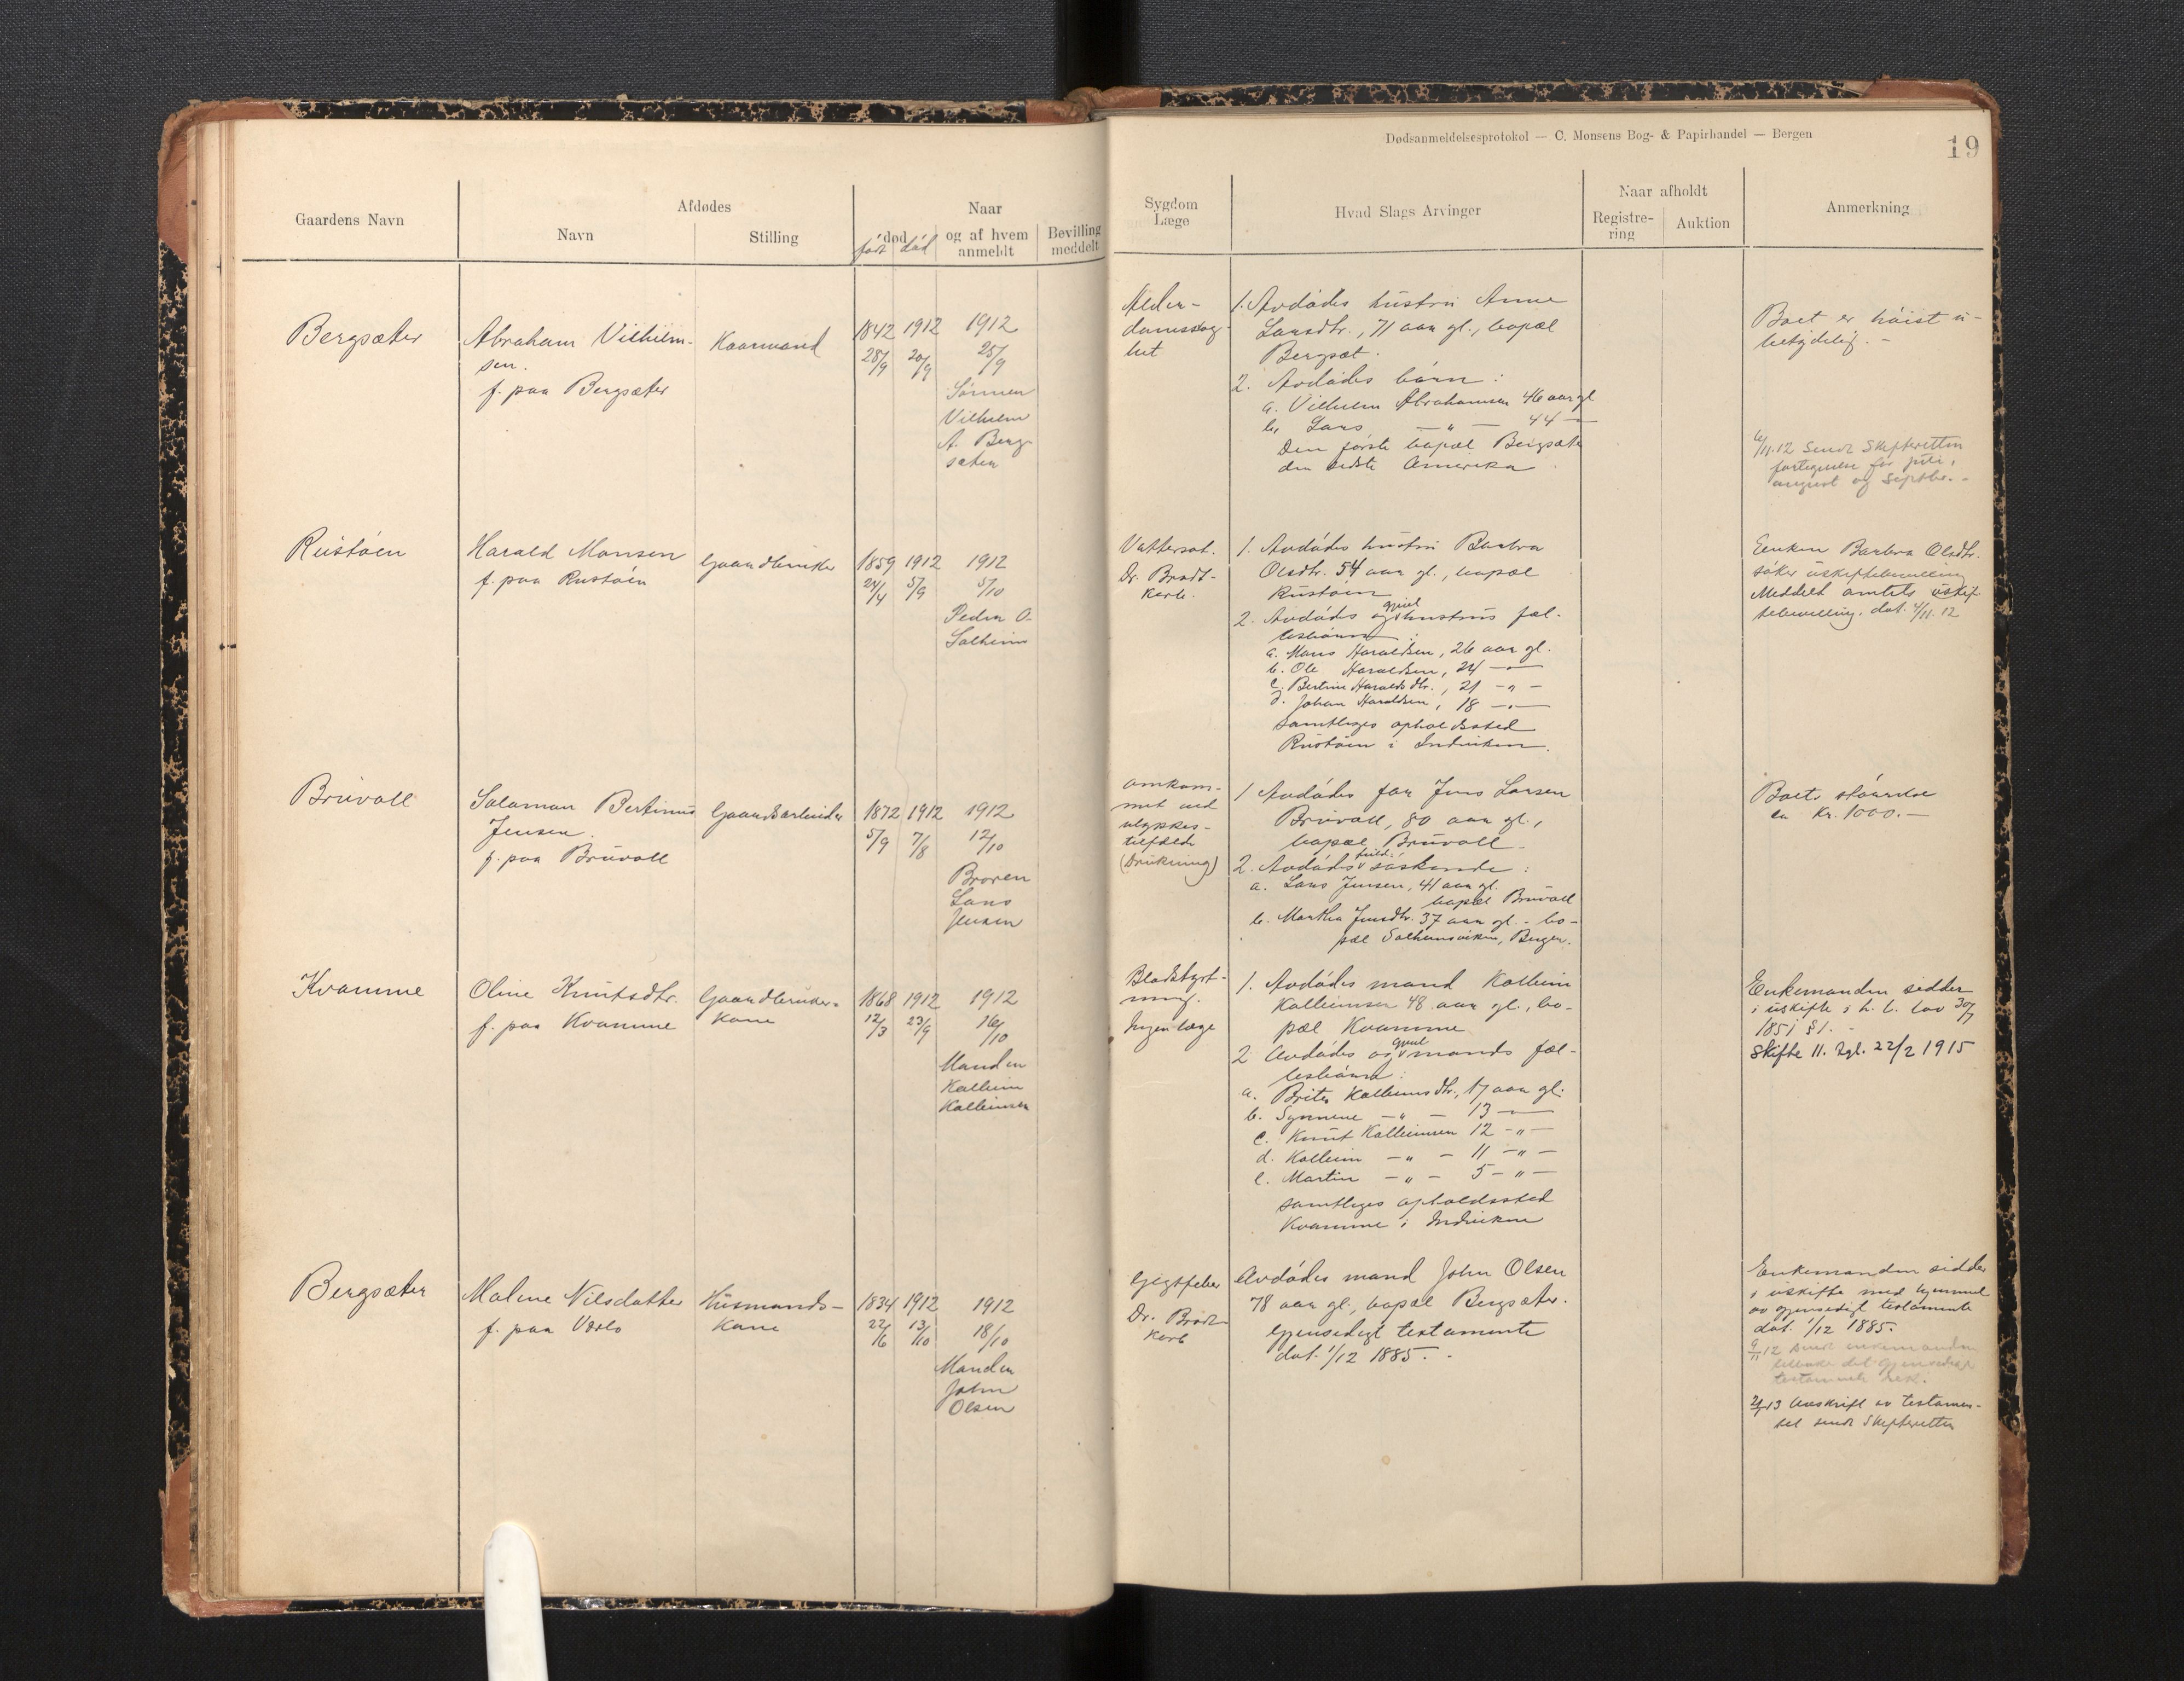 Dødsanmeldelsesprotokol — C. Monsens Bog- & Papirhandel — Bergen
19
Gaardens Navn
Afdødes
Navn
Stilling
Naar
død
født død
og af hvem
anmeldt
Bevilling
meddelt
Sygdom
Læge
Hvad Slags Arvinger
Naar afholdt
Registre-
ring
Auktion
Anmerkning
Bergsæter
Abraham Vilhelm-
sen.
f. paa Bergsæter
Kaarmand
1842 1912 1912
28/9 20/9 28/9
Sønnen
Vilhelm
A. Berg-
sæter
Alder-
domssvag-
het
1. Avdødes hustru Anne
Larsdtr., 71 aar gl., bopæl
Bergsæt.
2. Avdødes børn:
a. Vilhelm Abrahamsen 46 aar gl
b. Lars — " — 44 —
Den første bopæl Bergsæter
den sidste Amerika
Boet er høist u-
betydelig. -
6/11.12 Sendt Skifteretten
fortegnelse for juli,
august og Septbr. -
Rustøen
Harald Monsen
f. paa Rustøen
Gaardbruker
1859 1912 1912
24/4 5/9 5/10
Peder O.
Solheim
Vattersot.
Dr. Brodt-
korb.
1. Avdødes hustru Barbra
Olsdtr. 54 aar gl., bopæl
Rustøen
2. Avdødes og gjenl hustrus fæl-
lesbørn:
a. Mons Haraldsen, 26 aar gl.
b. Ole Haraldsen, 24 —
c. Bertine Haralds dtr., 21 - " -
d. Johan Haraldsen, 18 - " -
samtliges opholdssted
Rustøen i Indviken.
Enken Barbra Olsdtr.
søker uskiftebevilling
Meddelt amtets uskif-
tebevilling. dat. 4/11.12
Bruvoll
Salamon Bertinus
Jensen.
f. paa Bruvoll
Gaardsarbeider
1872 1912 1912
5/9 7/8 12/10
Broren
Lars
Jensen
omkom-
met ved
ulykkes-
tilfælde
(Drukning)
1 Avdødes far Jens Larsen
Bruvoll, 80 aar gl.,
bopæl Bruvoll.
2. Avdødes fuld. søskende:
a. Lars Jensen, 41 aar gl.
bopæl Bruvoll
b. Martha Jensdtr. 37 aar gl. - bo-
pæl Solheimsviken, Bergen.
Boets størrelse
ca Kr. 1000. —
Kvamme
Oline Knutsdtr.
f. paa Kvamme
Gaardbruker-
kone
1868 1912 1912
12/3 23/9 16/10
Manden
Kolbein
Kolbeinsen
Blodstyrt-
ning.
Ingen læge
1. Avdødes mand Kolbein
Kolbeinsen 48 aar gl., bo-
pæl Kvamme
2 Avdødes og gjenl mands fæl-
lesbørn:
a. Brite Kolbeins dtr., 17 aar gl.
b. Synneve — " — 13 —
c. Knut Kolbeinsen 12 - " -
d. Kolbein — " — 11 - " -
e. Martin — " — 5 - " -
samtliges opholdssted
Kvamme i Indviken
Enkemanden sidder
i uskifte i h. t. lov 30/7
1851 §1. -
Skifte II. Tgl. 22/2 1915
Bergsæter
Malene Nilsdatter
f. paa
Husmands-
kone
1834 1912 1912
22/6 13/10 18/10
Manden
John
Olsen
Gigtfeber
Dr. Brodt-
korb
Avdødes mand John Olsen
78 aar gl., bopæl Bergsæter.
Gjensidigt testamente
dat. 1/12 1885. -
Enkemanden sidder
i uskifte med hjemmel
av gjensidigt testamente
dat. 1/12 1885.
9/11 12 sendt enkemanden
det gjensidige
testamente
2/1 13 Avskrift av testamen-
tet sendt Skifteretten